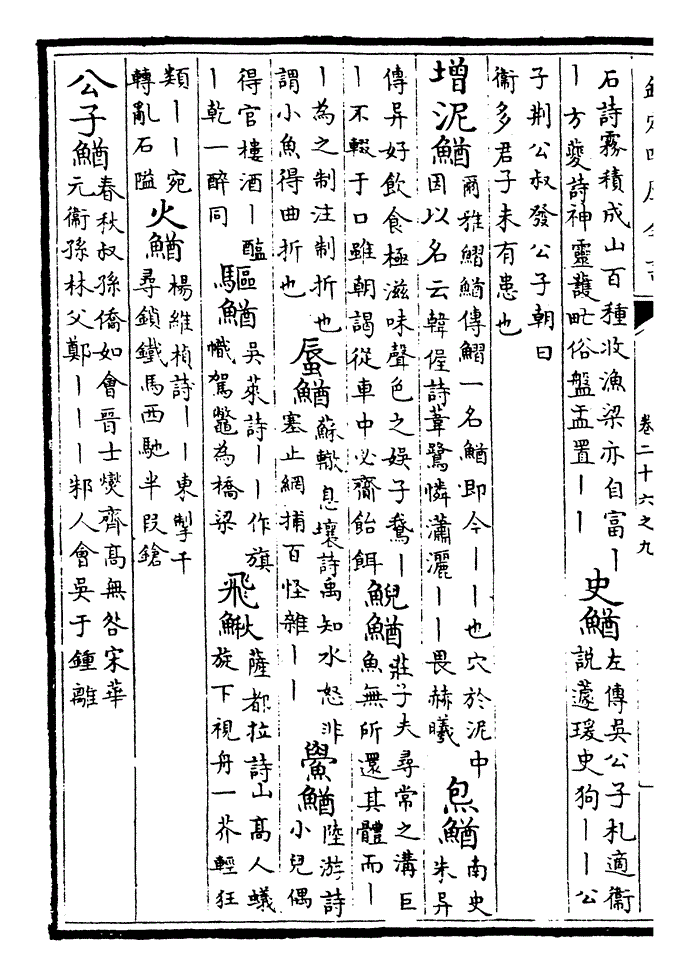 卷二十六之九
石詩霧積成山百種收漁梁亦自富丨
丨方夔詩神靈護甿俗盤盂置丨丨
史鰌
左傳吳公子札適衛
說蘧瑗史狗丨丨公
子荆公叔發公子朝曰
衛多君子未有患也
增泥鰌
爾雅鰼鰌傳鰼一名鰌即今丨丨也穴於泥中
因以名云韓偓詩葦鷺憐瀟灑丨丨畏赫曦
炰鰌
南史
朱异
傳异好飲食極滋味聲色之娱子鵞丨
丨不輟于口雖朝謁從車中必齎飴餌
鯢鰌
莊子夫尋常之溝巨
魚無所還其體而丨
丨為之制注制折也
謂小魚得曲折也
蜃鰌
蘇轍息壤詩禹知水怒非
塞止網捕百怪雜丨丨
鱟鰌
陸游詩
小兒偶
得官樓酒丨醢
丨乾一醉同
驅鰌
吳萊詩丨丨作旗
幟駕鼈為橋梁
飛鰍
薩都拉詩山髙人蟻
旋下視舟一芥輕狂
類丨丨宛
轉亂石隘
火鰌
楊維楨詩丨丨東掣千
尋鎖鐵馬西馳半段鎗
公子鰌
春秋叔孫僑如會晋士燮齊髙無咎宋華
元衛孫林父鄭丨丨丨邾人會吳于鍾離